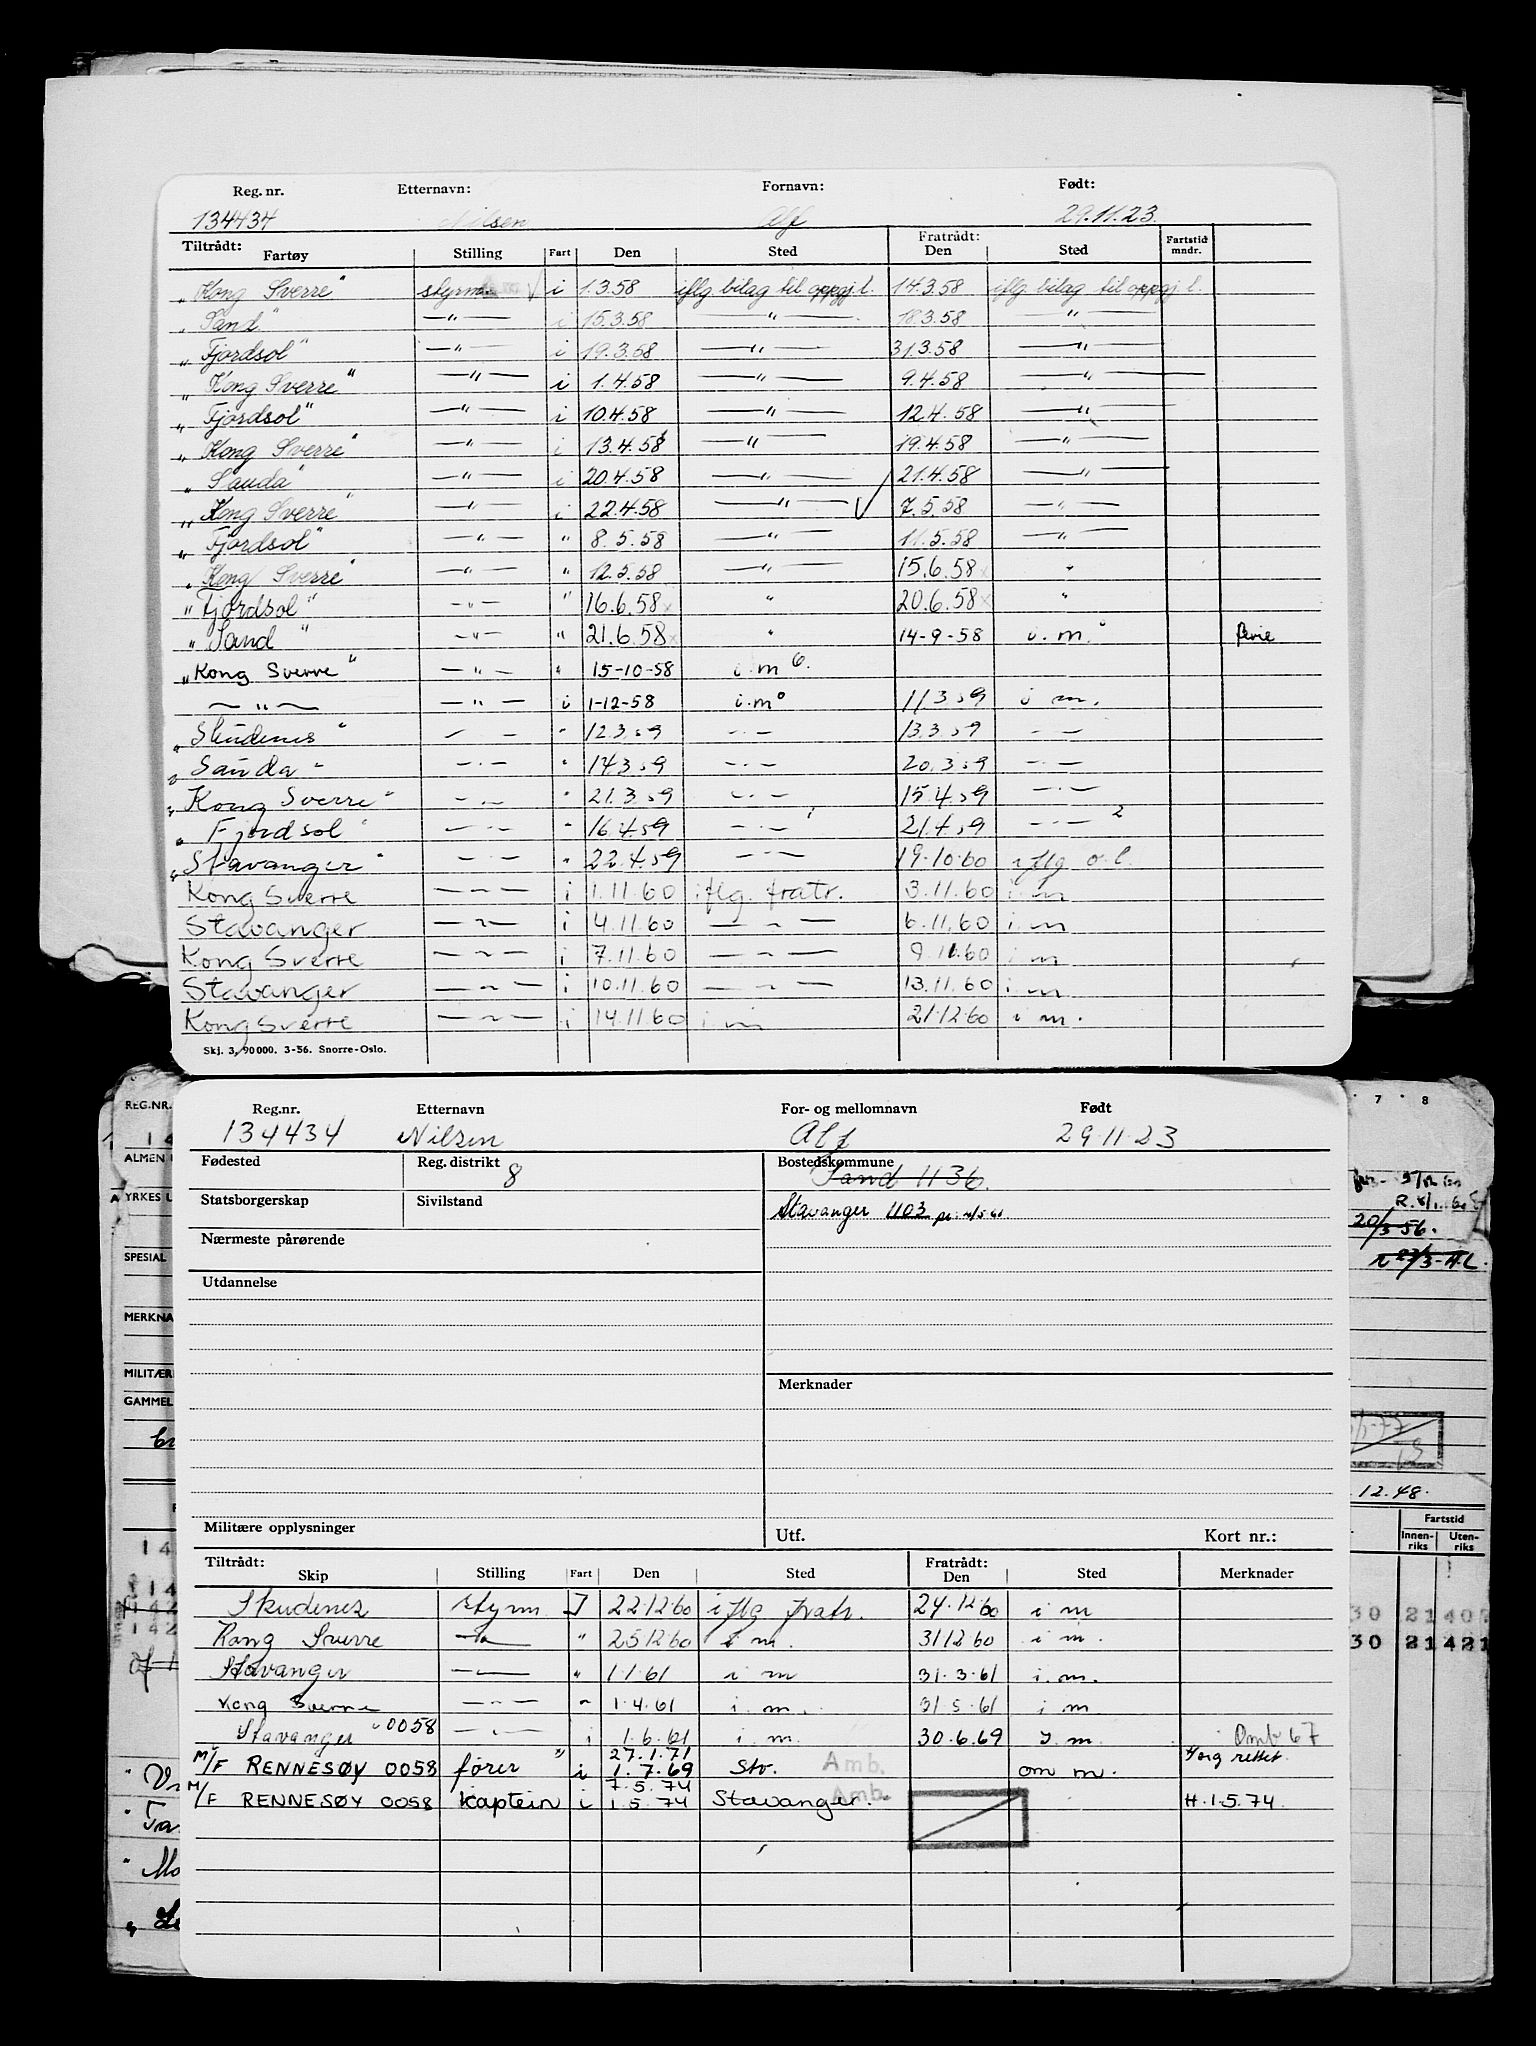 Reg. nr. Etternavn: Fornavn: Født:
134434 Nilsen Alf 29.11.23.
Tiltrådt: Fratrådt: Fartstid
Fartøy Stilling Fart Den Sted Den Sted mndr.
„Kong Sverre" styrm. i 1.3.58 iflg bilag til oppgj.l. 14.3.58 iflg. bilag til oppgj.l.
„Sand" —"— i 15.3.58 —"— 18.3.58 —"—
„Fjordsol" —"— i 19.3.58 —"— 31.3.58 —"—
„Kong Sverre" —"— i 1.4.58 —"— 9.4.58 —"—
„Fjordsol" —"— i 10.4.58 —"— 12.4.58 —"—
„Kong Sverre" —"— i 13.4.58 —"— 19.4.58 —"—
„Sauda" —"— i 20.4.58 —"— 21.4.58 —"—
„Kong Sverre" —"— i 22.4.58 —"— 7.5.58 —"—
„Fjordsol" —"— " 8.5.58 —"— 11.5.58 —"—
„Kong Sverre" —"— " 12.5.58 —"— 15.6.58 "
„Fjordsol" —"— " 16.6.58 " 20.6.58 "
„Sand" —"— " 21.6.58 " 14-9-58 i.m. ferie
„Kong Sverre" —"— " 15-10-58 i.m
—"— —"— i 1-12-58 i.m 11.3.59 i m.
„Skudenes" —"— " 12.3.59 —"— 13.3.59 —"—
„Sauda" —"— " 14.3.59 —"— 20.3.59 —"—
„Kong Sverre" —"— " 21.3.59 —"— 15.4.59 —"—
„Fjordsol" —"— " 16.4.59 —"— 21.4.59 —"— 2
„Stavanger" —"— " 22.4.59 —"— 19.10.60 iflg o.l.
Kong Sverre —"— i 1.11.60 iflg. fratr. 3.11.60 i.m
Stavanger —"— i 4.11.60 —"— 6.11.60 i.m
Kong Sverre —"— i 7.11.60 —"— 9.11.60 i m
Stavanger —"— i 10.11.60 —"— 13.11.60 i.m
Kong Sverre —"— i 14.11.60 i m 21.12.60 i m.
Skj. 3, 90 000. 3-56. Snorre-Oslo.
Reg.nr. Etternavn For- og mellomnavn Født
134434 Nilsen Alf 29.11.23
Fødested Reg. distrikt 8 Bostedskommune
Sand 1136.
Statsborgerskap Sivilstand
Stavanger 1103
Nærmeste pårørende
Utdannelse
Merknader
Militære opplysninger Utf. Kort nr.:
Tiltrådt: Fratrådt:
Skip Stilling Fart Den Sted Den Sted Merknader
Skudenes styrm I 22.12.60 iflg fratr. 24.12.60 i m
Kong Sverre —"— " 25.12.60 i m. 31.12.60 i m.
Stavanger —"— " 1.1.61 i m 31.3.61 i.m.
Kong Sverre —"— " 1.4.61 i.m. 31.5.61 i m
Stavanger 0058 —"— i 1.6.61 i.m. 30.6.69 I.m. Omb 67
27.1.71
M/F RENNESØY 0058 fører i 1.7.69 Stv. Amb. om m. rettet
7.5.74
M/F RENNESØY 0058 kaptein i 1.5.74 Stavanger. Amb. H.1.5.74.
REG.NR.
ALMEN
YRKES
SPESIAL
MERKNA
MILITÆR
GAMMEL
7 8
20/3-56.
12.48.
Fartstid
Innen-riks Uten-riks
30 21 40
30 21 421